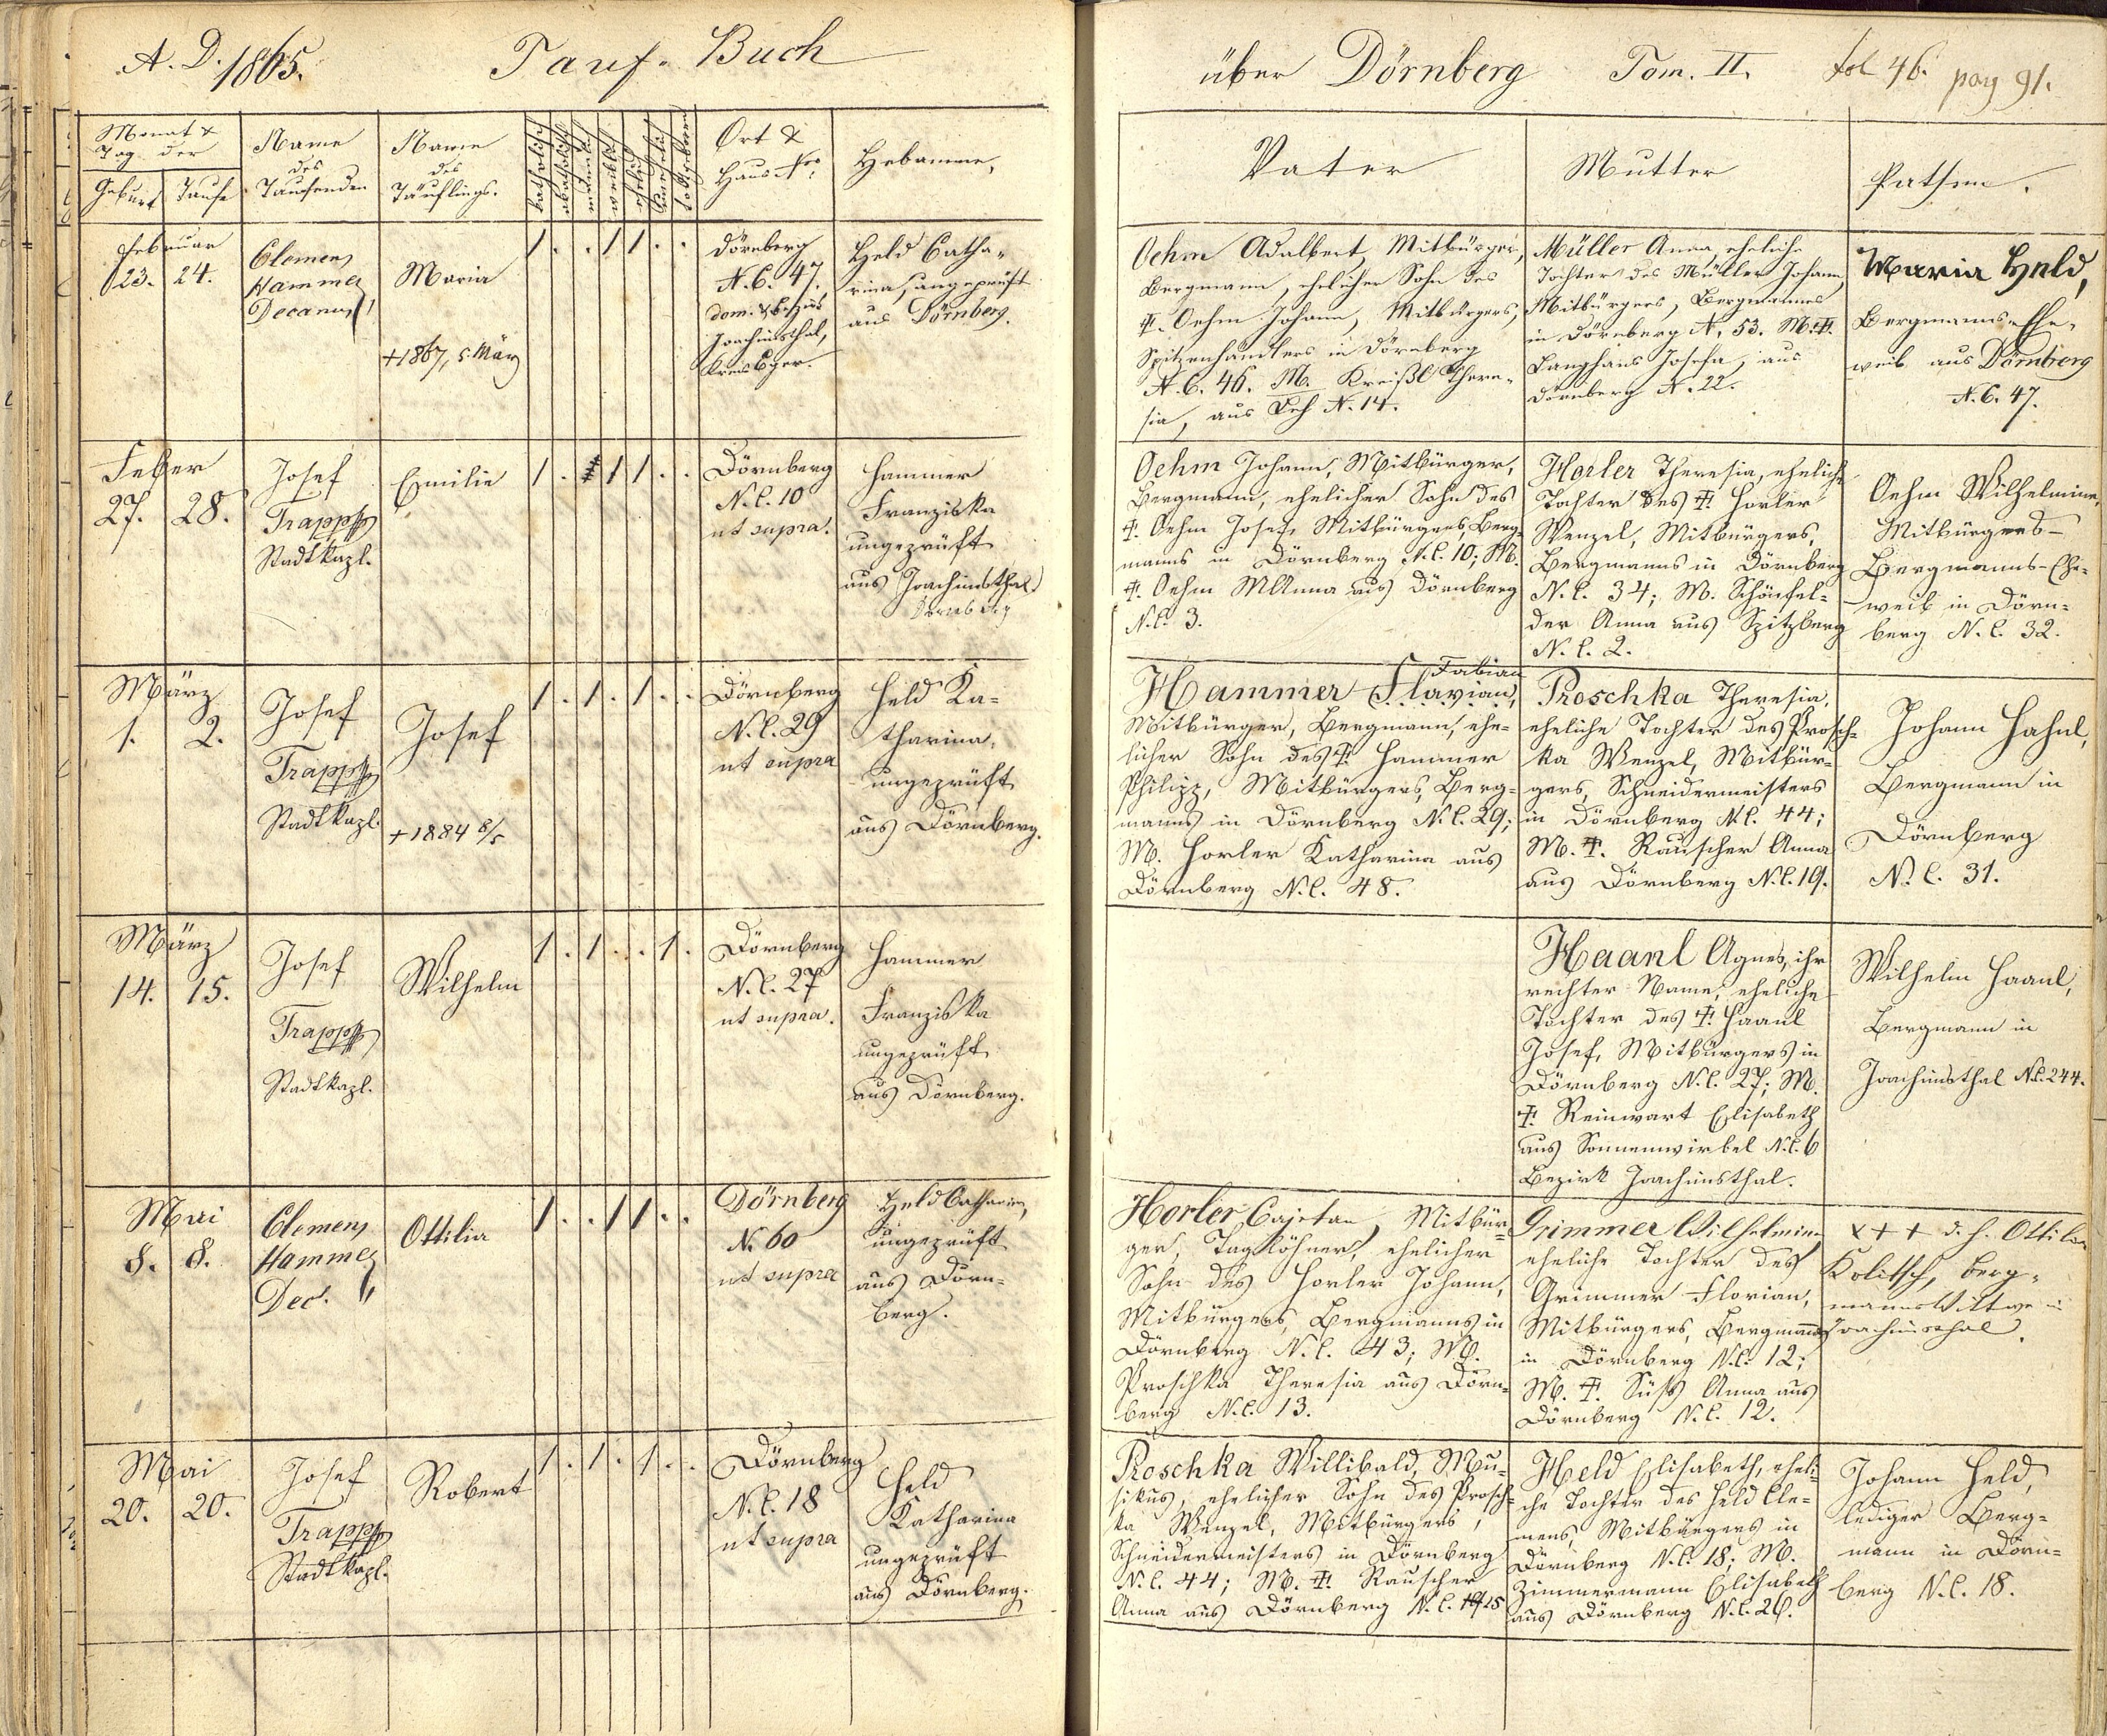 A. D. 1865.
Tauf-Buch
über Dörnberg Tom. II. fol 46. pag 91.
Monat &
Tag der
Geburt
Taufe
Name
des
Taufenden
Name
des
Täuflings.
katholisch
akatholisch
männlich
weiblich
ehelich
unehelich
todtgeboren
Ort &
Haus Nro
Hebamme.
Vater
Mutter
Pathen.
Februar
23. 24.
Clemens
Hammer
Decanus
Maria
+1867, 5 März
1 . . 1 1 . .
Dörnberg
N. C. 47.
dom. & Bezirk
Joachimsthal,
Kreis Eger.
Held Catha-
rina, ungeprüft
aus Dörnberg.
Oehm Adalbert, Mitbürger,
Bergmann, ehelicher Sohn des
Oehm Johann, Mitbürgers,
Spitzenhändlers in Dörnberg
N. C. 46. M. Kreißl There-
sia, aus N. 14.
Müller Anna, eheliche
Tochter des Müller Johann,
Mitbürgers, Bergmannes
in Dörnberg N. 53. M. ✝.
Langhans Josefa, aus
Dörnberg N. 22.
Maria Held,
Bergmanns-Ehe-
weib aus Dörnberg
N. C. 47.
Feber
27. 28.
Josef
Trapp
Stadtkapl.
Emilie
1 . . 1 1 . .
Dörnberg
N. C. 10
ut supra.
Hammer
Franziska
ungeprüft
aus Joachimsthal
Dörnberg
Oehm Johann, Mitbürger,
Bergmann, ehelicher Sohn des
✝. Oehm Josef, Mitbürgers, Berg-
manns in Dörnberg N. C. 10; M.
✝. Oehm MAnna aus Dörnberg
N. C. 3.
Horler Theresia, eheliche
Tochter des ✝. Horler
Wenzel, Mitbürgers,
Bergmanns in Dörnberg
N. C. 34; M. Schönfel-
der Anna aus Spitzberg
N. C. 2.
Oehm Wilhelmine,
Mitbürgers-
Bergmanns-Ehe-
weib in Dörn-
berg N. C. 32.
März
1. 2.
Josef
Trapp
Stadtkapl.
Josef
+1884 8/5
1 . 1 . 1 . .
Dörnberg
N. C. 29
ut supra
Held Ka-
tharina,
ungeprüft
aus Dörnberg.
Fabian
Hammer Flavian,
Mitbürger, Bergmann, ehe-
licher Sohn des ✝. Hammer
Philipp, Mitbürgers, Berg-
manns in Dörnberg N. C. 29;
M. Horler Katharina aus
Dörnberg N. C. 48.
Proschka Theresia,
eheliche Tochter des Prosch-
ka Wenzel, Mitbür-
gers, Schneidermeisters
in Dörnberg N. C. 44;
M. ✝. Rauscher Anna
aus Dörnberg N. C. 19.
Johann Hahnl,
Bergmann in
Dörnberg
N. C. 31.
März
14. 15.
Josef
Trapp
Stadtkapl.
Wilhelm
1 . 1 . . 1 .
Dörnberg
N. C. 27
ut supra.
Hammer
Franziska
ungeprüft
aus Dörnberg.
Haanl Agnes, ihr
rechter Name, eheliche
Tochter des ✝. Haanl
Josef, Mitbürgers in
Dörnberg N. C. 27; M.
✝. Reinwart Elisabeth
aus Sonnenwirbel N. C. 6
Bezirk Joachimsthal.
Wilhelm Haanl,
Bergmann in
Joachimsthal N. C. 244.
Mai
8. 8.
Clemens
Hammer
Dec.
Ottilia
1 . . 1 1 . .
Dörnberg
N. 60
ut supra
Held Catharina,
ungeprüft
aus Dörn-
berg.
Horler Cajetan, Mitbür-
ger, Taglöhner, ehelicher
Sohn des Horler Johann,
Mitbürgers, Bergmanns in
Dörnberg N. C. 43; M.
Proschka Theresia aus Dörn-
berg N. C. 13.
Grimmer Wilhelmine,
eheliche Tochter des
Grimmer Florian,
Mitbürgers, Bergmanns
in Dörnberg N. C. 12;
M. ✝. Süß Anna aus
Dörnberg N. C. 12.
x + + d. h. Ottilia
Kolitsch, Berg-
manns Witwe in
Joachimsthal.
Mai
20. 20.
Josef
Trapp
Stadtkapl.
Robert
1 . 1 . 1 . .
Dörnberg
N. C. 18
ut supra
Held
Katharina
ungeprüft
aus Dörnberg.
Proschka Willibald, Mu-
sikus, ehelicher Sohn des Prosch-
ka Wenzel, Mitbürgers,
Schneidermeisters in Dörnberg
N. C. 44; M. ✝. Rauscher
Anna aus Dörnberg N. C. 15
Held Elisabeth, eheli-
che Tochter des Held Cle-
mens Mitbürgers in
Dörnberg N. C. 18; M.
Zimmermann Elisabeth
aus Dörnberg N. C. 26.
Johann Held,
lediger Berg-
mann in Dörn-
berg N. C. 18.